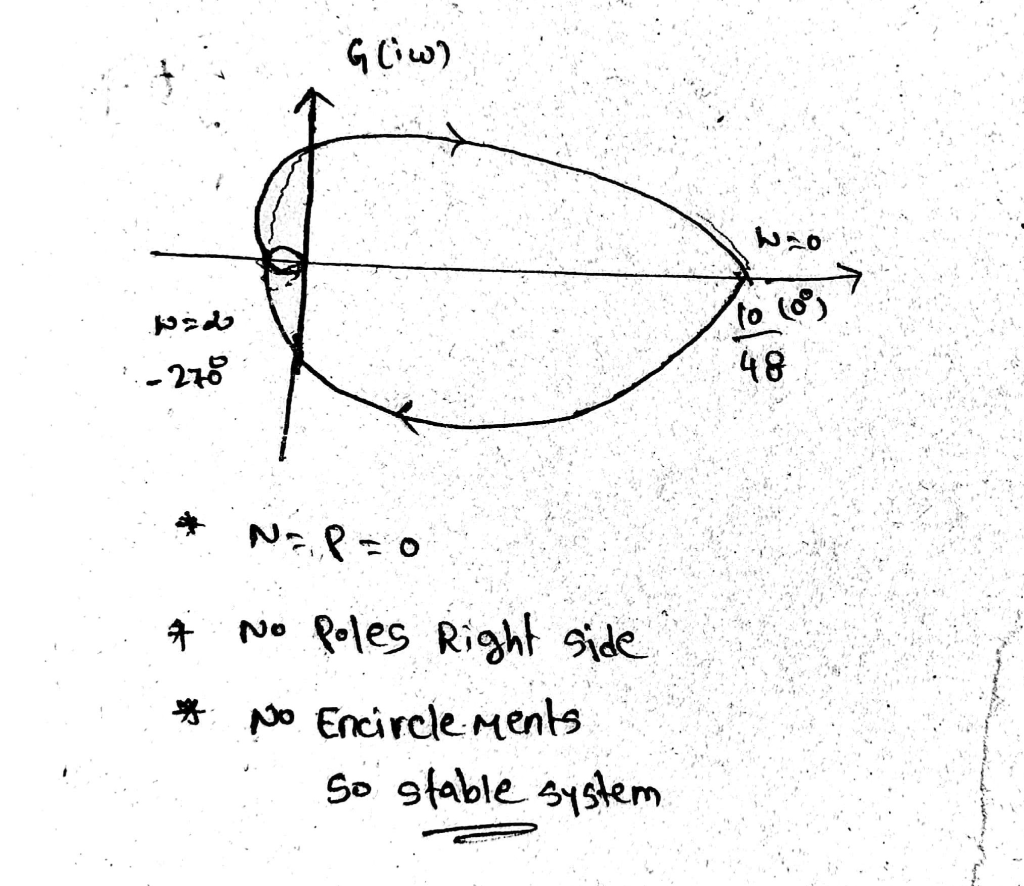 G(iω)
ω=0
10 (0°)
48
ω=∞
-270°
* N=P=0
* No Poles Right side
* No Encirclements
So stable system